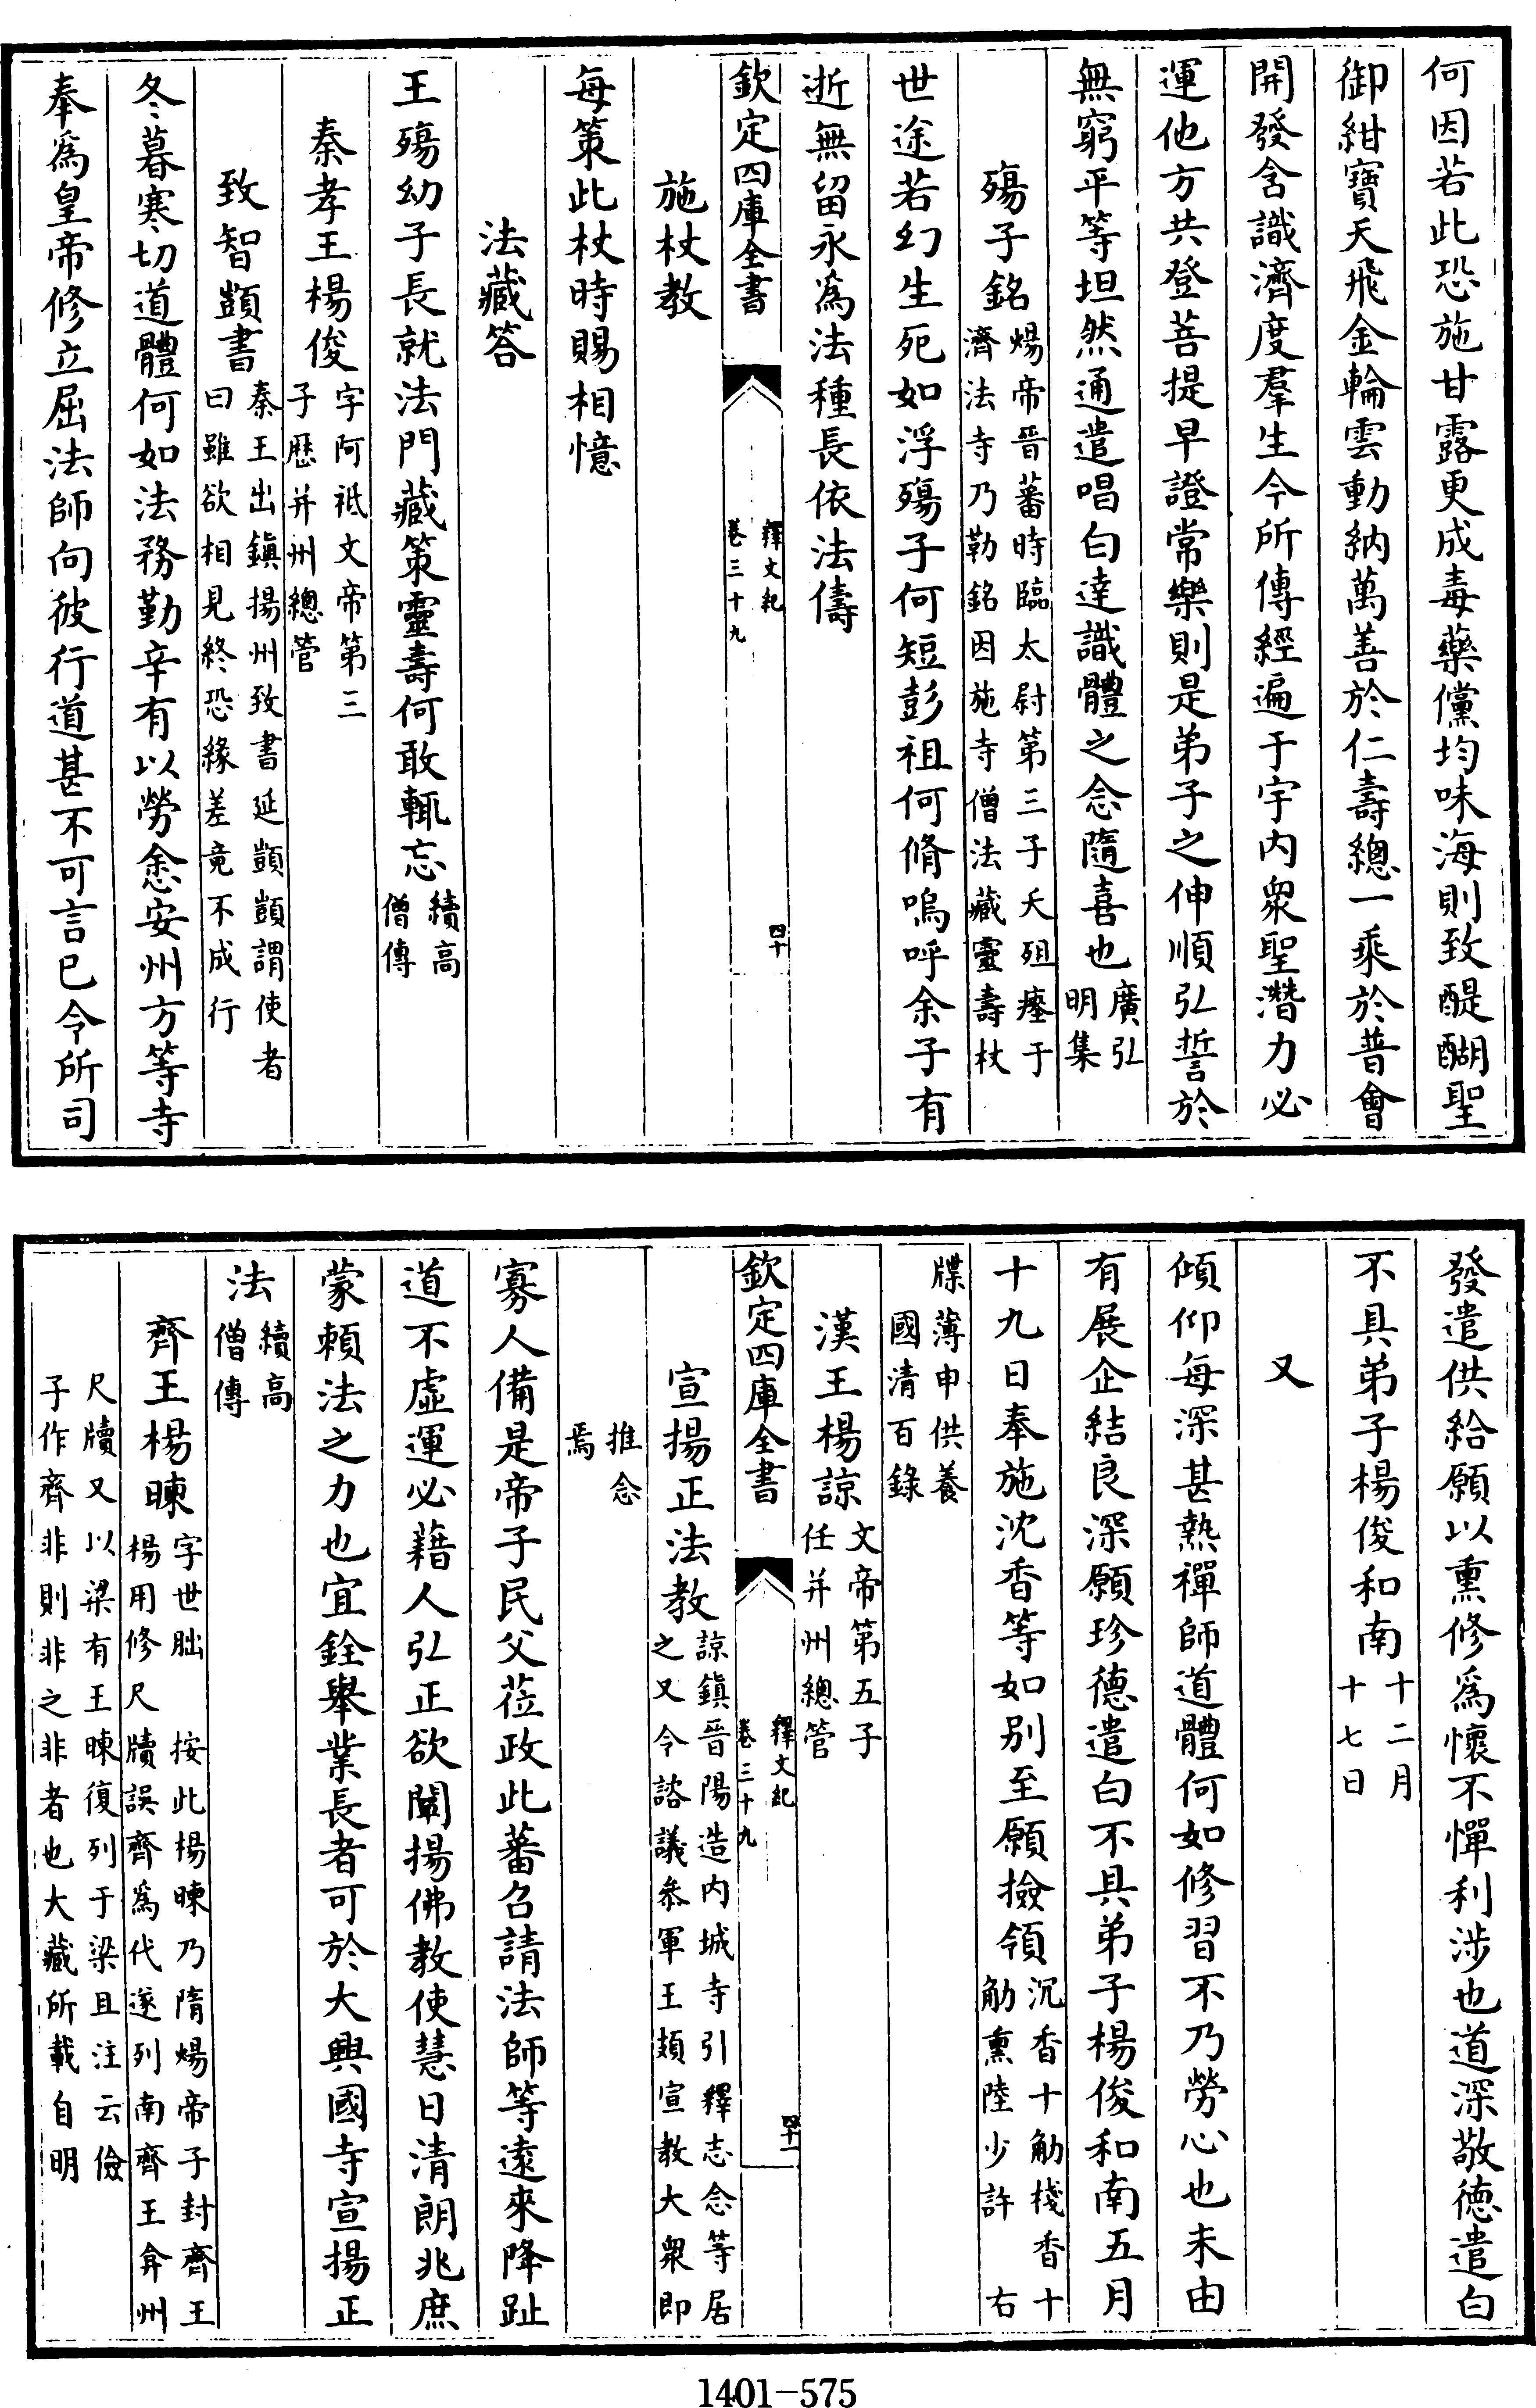 何因若此恐施甘露更成毒藥儻均味海則致醍醐聖
御紺寶天飛金輪雲動納萬善於仁壽總一乘於普會
開發含識濟度羣生今所傳經遍于宇内衆聖潛力必
運他方共登菩提早證常樂則是弟子之伸順弘誓於
無窮平等坦然通遣唱白達識體之念隨喜也廣弘明集
殤子銘煬帝晉蕃時臨太尉第三子夭殂瘞于濟法寺乃勒銘因施寺僧法藏靈壽杖
世途若幻生死如浮殤子何短彭祖何脩嗚呼余子有
逝無留永爲法種長依法儔
欽定四庫全書 釋文紀卷三十九 四十
施杖教
每策此杖時賜相憶
法藏答
王殤幼子長就法門藏策靈壽何敢輒忘續高僧傳
秦孝王楊俊字阿祗文帝第三子歷并州總管
致智顗書秦王出鎭揚州致書延顗顗謂使者曰雖欲相見終恐緣差竟不成行
冬暮寒切道體何如法務勤辛有以勞悆安州方等寺
奉爲皇帝修立屈法師向彼行道甚不可言已令所司
發遣供給願以熏修爲懷不憚利涉也道深敬徳遣白
不具弟子楊俊和南十二月十七日
又
傾仰每深甚熱禪師道體何如修習不乃勞心也未由
有展企結良深願珍德遣白不具弟子楊俊和南五月
十九日奉施沈香等如别至願撿領沉香十觔棧香十觔熏陸少許 右
牒薄申供養國清百錄
漢王楊諒文帝第五子任并州總管
欽定四庫全書 釋文紀卷三十九 四十一
宣揚正法教諒鎭晉陽造内城寺引釋志念等居之又令諮議叅軍王頍宣教大衆即
推念焉
寡人備是帝子民父莅政此蕃召請法師等遠來降趾
道不虛運必藉人弘正欲闡揚佛教使慧日清朗兆庶
蒙賴法之力也宜銓舉業長者可於大興國寺宣揚正
法續高僧傳
齊王楊暕字世朏 按此楊暕乃隋煬帝子封齊王楊用修尺牘誤齊爲代遂列南齊王弇州
尺牘又以梁有王暕復列于梁且注云儉子作齊非則非之非者也大藏所載自明
1401-575